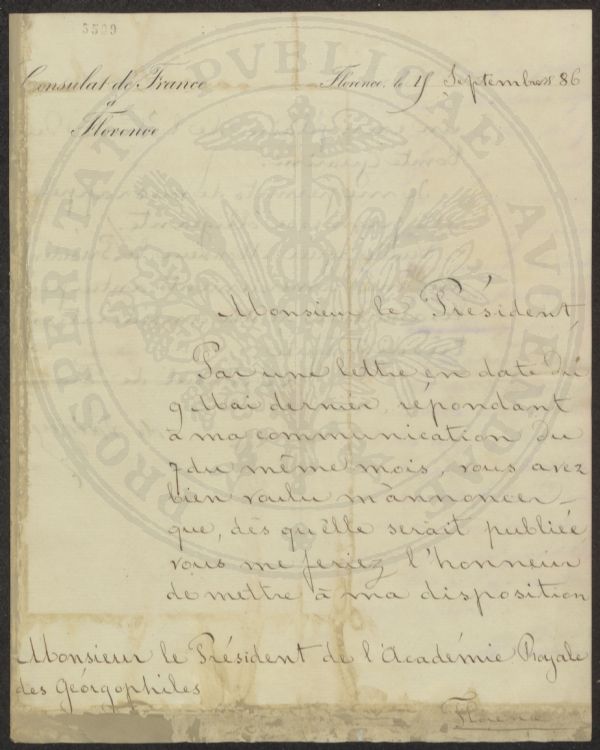 3509
PROSPERITATI PVBLICAE AVGENDAE
Consulat de France
à
Florence
Florence, le Septembre 86
Monsieur le Président,
Par une lettre en date du
9 Mai dernier, répondant
à ma communication du
7 du même mois, vous avez
bien voulu m'annoncer
que, dès qu'elle serait publiée
vous me feriez l'honneur
de mettre à ma disposition
Monsieur le Président de l'Académie Royale
des Géorgophiles
Florence